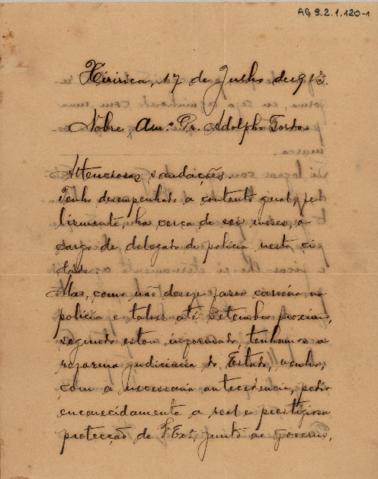 AG 9.2.1.120-1
Xiririca, 17 de Julho de 913.
Nobre Am.º Dr. Adolpho Gordo
Attenciosas saudações.
Tenho desempenhado a contento geral, fe-
lizmente, ha cerca de seis mezes, o
cargo de delegado de policia nesta ci-
dade.
Mas, como não desejo fazer carreira na
policia e talvez até Setembro proximo,
segundo estou informado, tenhamos a
reforma judiciaria do Estado, venho,
com a necessaria antecedencia, pedir
encarecidamente a real e prestigiosa
protecção de V. Exa. junto ao governo,